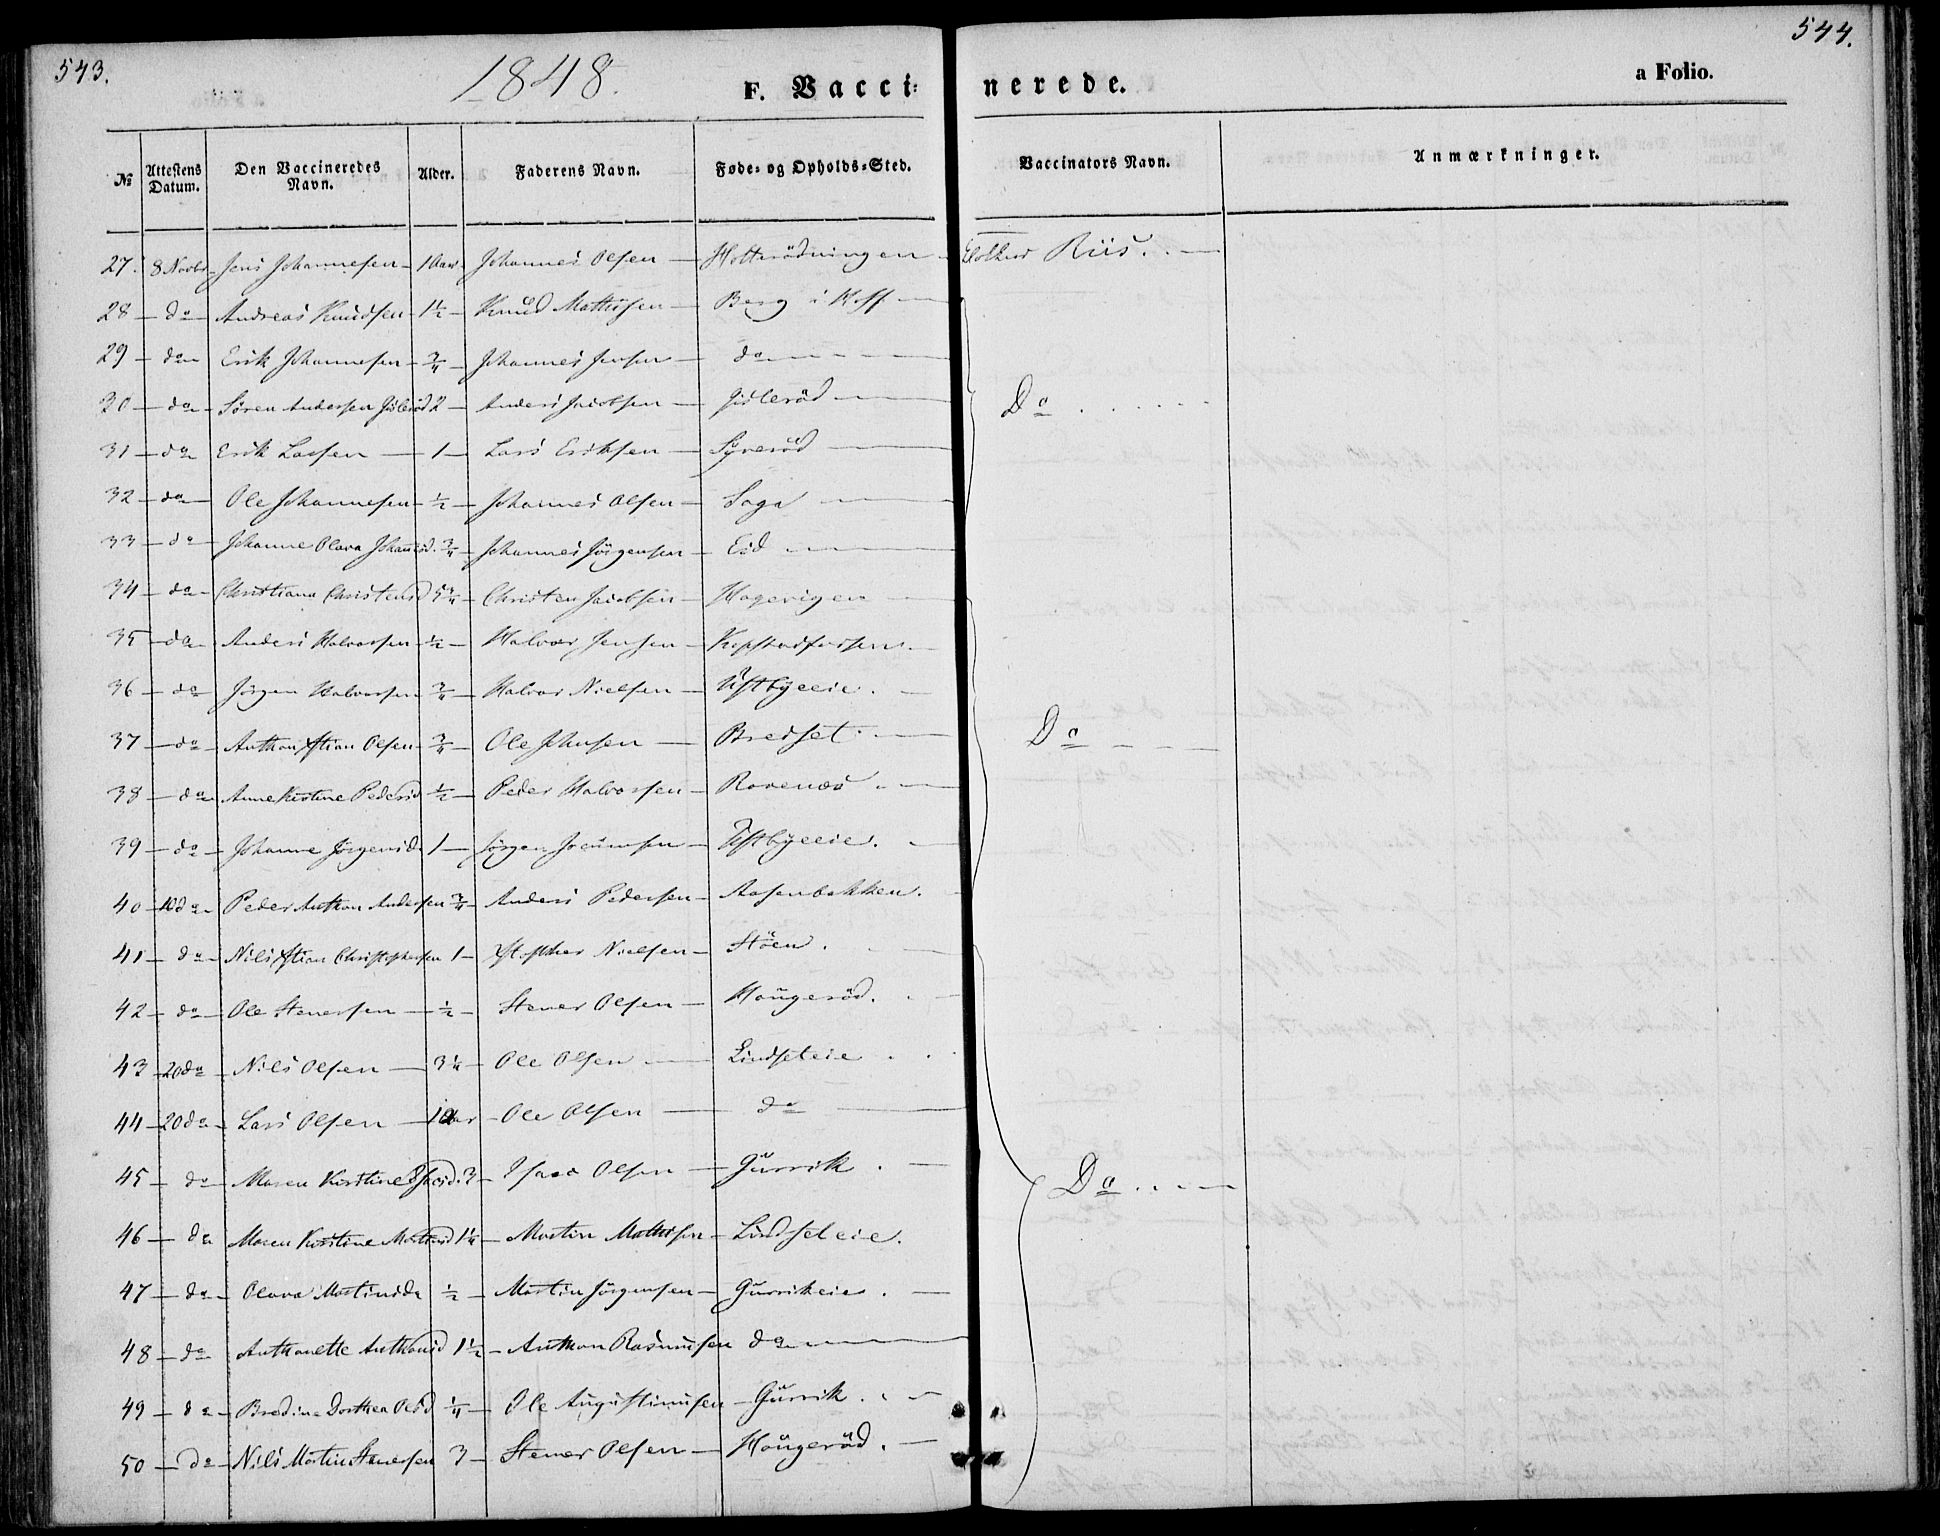 543.
1848.
F. Vacci-
nerede.
a Folio.
544.
№ Attestens Datum. Den Vaccineredes Navn. Alder. Faderens Navn. Føde- og Opholds-Sted. Vaccinators Navn. Anmærkninger.
27. 8 Novbr Jens Johannesen 1 Aar Johannes Olsen Holtnrödningen Riis.
28 do Andreas Knudsen 1½ Knud Mathisen Berg i Hoff
29 do Erik Johannesen ¾ Johannes Jensen do
30 do Sören Andersen Gisleröd 2 Anders Jacobsen Gisleröd Do
31 do Erik Larsen 1 Lars Eriksen Syveröd
32 do Ole Johannesen ½ Johannes Olsen Saga
33 do Johanne Olava Johansd. ¾ Johannes Jörgensen Eid
34 do Christiana Christensd 5¾ Christen Jacobsen Hagevigen
35 do Anders Halvorsen ½ Halvor Jensen Kopstadfossen
36 do Jörgen Halvorsen ¾ Halvor Nielsen Ustbyeeie.
37 do Anthon Xstian Olsen ¾ Ole Johnsen Bredset Do
38 do Anne Kirstine Pedersd ½ Peder Halvorsen Rovenæs
39 do Johanne Jörgensd 1 Jörgen Joeumsen Ustbyeeie.
40 10 do Peder Anthon Andersen ¾ Anders Pedersen Aasenbakken.
41 do Nils Xstian Christophersen 1 Xstopher Nielsen Stöen.
42 do Ole Stenersen ½ Stener Olsen Haugeröd.
43 20 do Nils Olsen 3¼ Ole Olsen Lindseteie
44 20 do Lars Olsen 10 Aar Ole Olsen do
45 do Maren Kirstine Isacsd. 3 Isaac Olsen Gurrik Do
46 do Maren Kirstine Martinsd 1¼ Martin Mathisen Lindseteie.
47 do Olava Martinsd ½ Martin Jörgensen Gurrikeie.
48 do Anthonette Anthonsd 1½ Anthon Rasmusen do
49 do Bredine Dorthea Olsd ¼ Ole Augustinusen Gurrik.
50 do Nils Martin Stenersen 3 Stener Olsen Haugeröd.